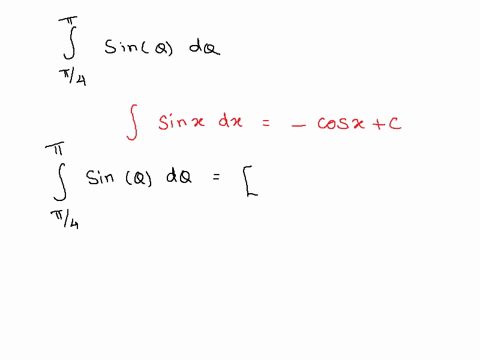 ∫_{π/4}^{π} Sin(Q) dQ
∫ Sinx dx = - cosx + C
∫_{π/4}^{π} Sin (Q) dQ = [